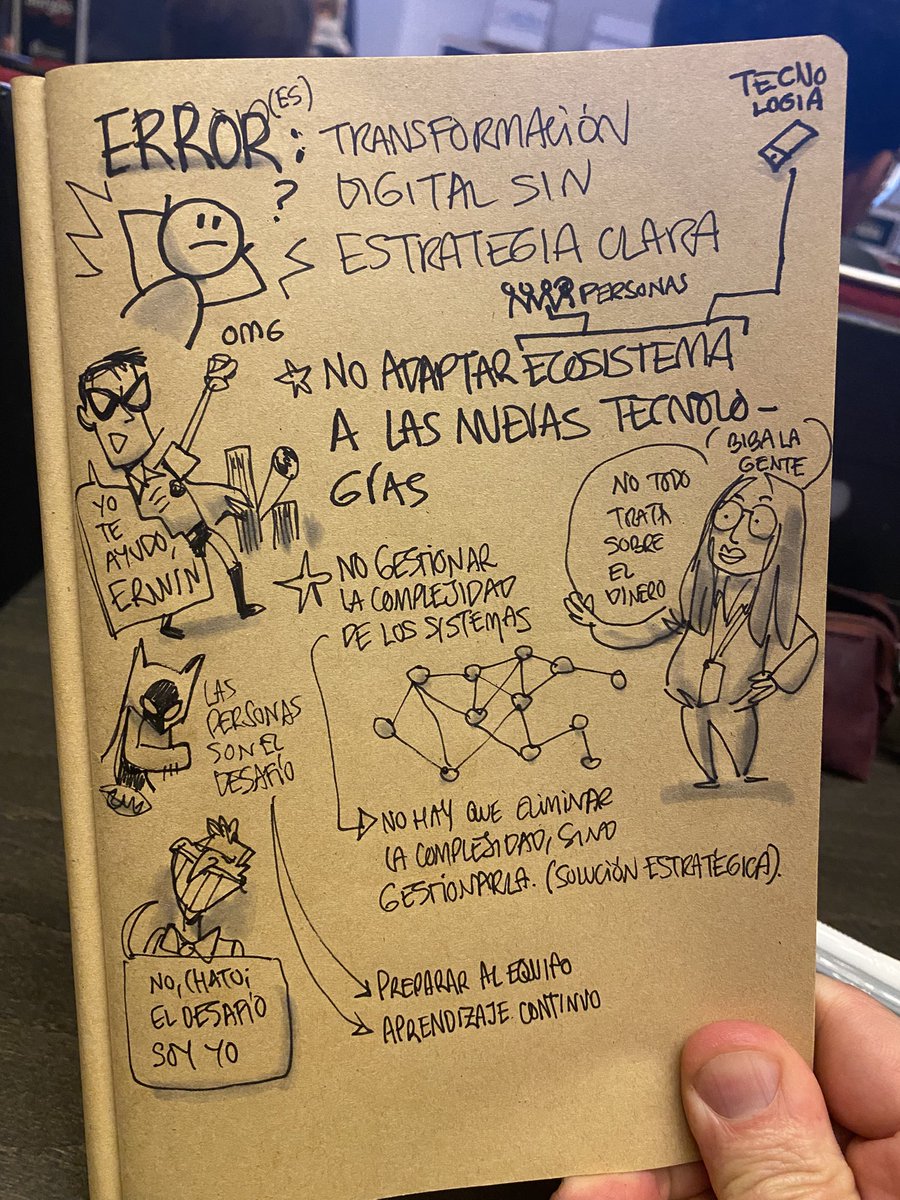 ERROR(ES):
TRANSFORMACIÓN
DIGITAL SIN
ESTRATEGIA CLARA
TECNO
LOGIA
?
PERSONAS
OMG
NO ADAPTAR ECOSISTEMA
A LAS NUEVAS TECNOLO-
GÍAS
YO
TE
AYUDO,
ERWIN
BIBA LA
GENTE
NO TODO
TRATA
SOBRE
EL
DINERO
NO GESTIONAR
LA COMPLEJIDAD
DE LOS SISTEMAS
LAS
PERSONAS
SON EL
DESAFÍO
NO HAY QUE ELIMINAR
LA COMPLEJIDAD, SINO
GESTIONARLA. (SOLUCIÓN ESTRATÉGICA).
NO, CHATO;
EL DESAFÍO
SOY YO
PREPARAR AL EQUIPO
APRENDIZAJE CONTINUO